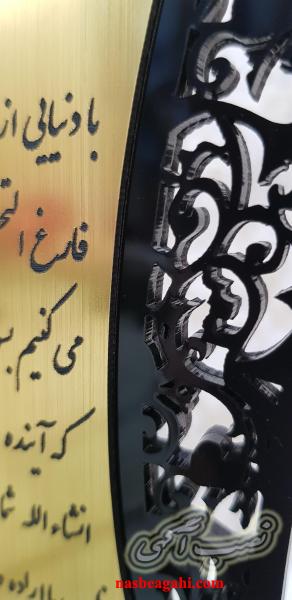 با دنیایی از
فارغ التح
می کنیم بس
که آینده
انشاء الله شا
نصب آگهی
nasbeagahi.com